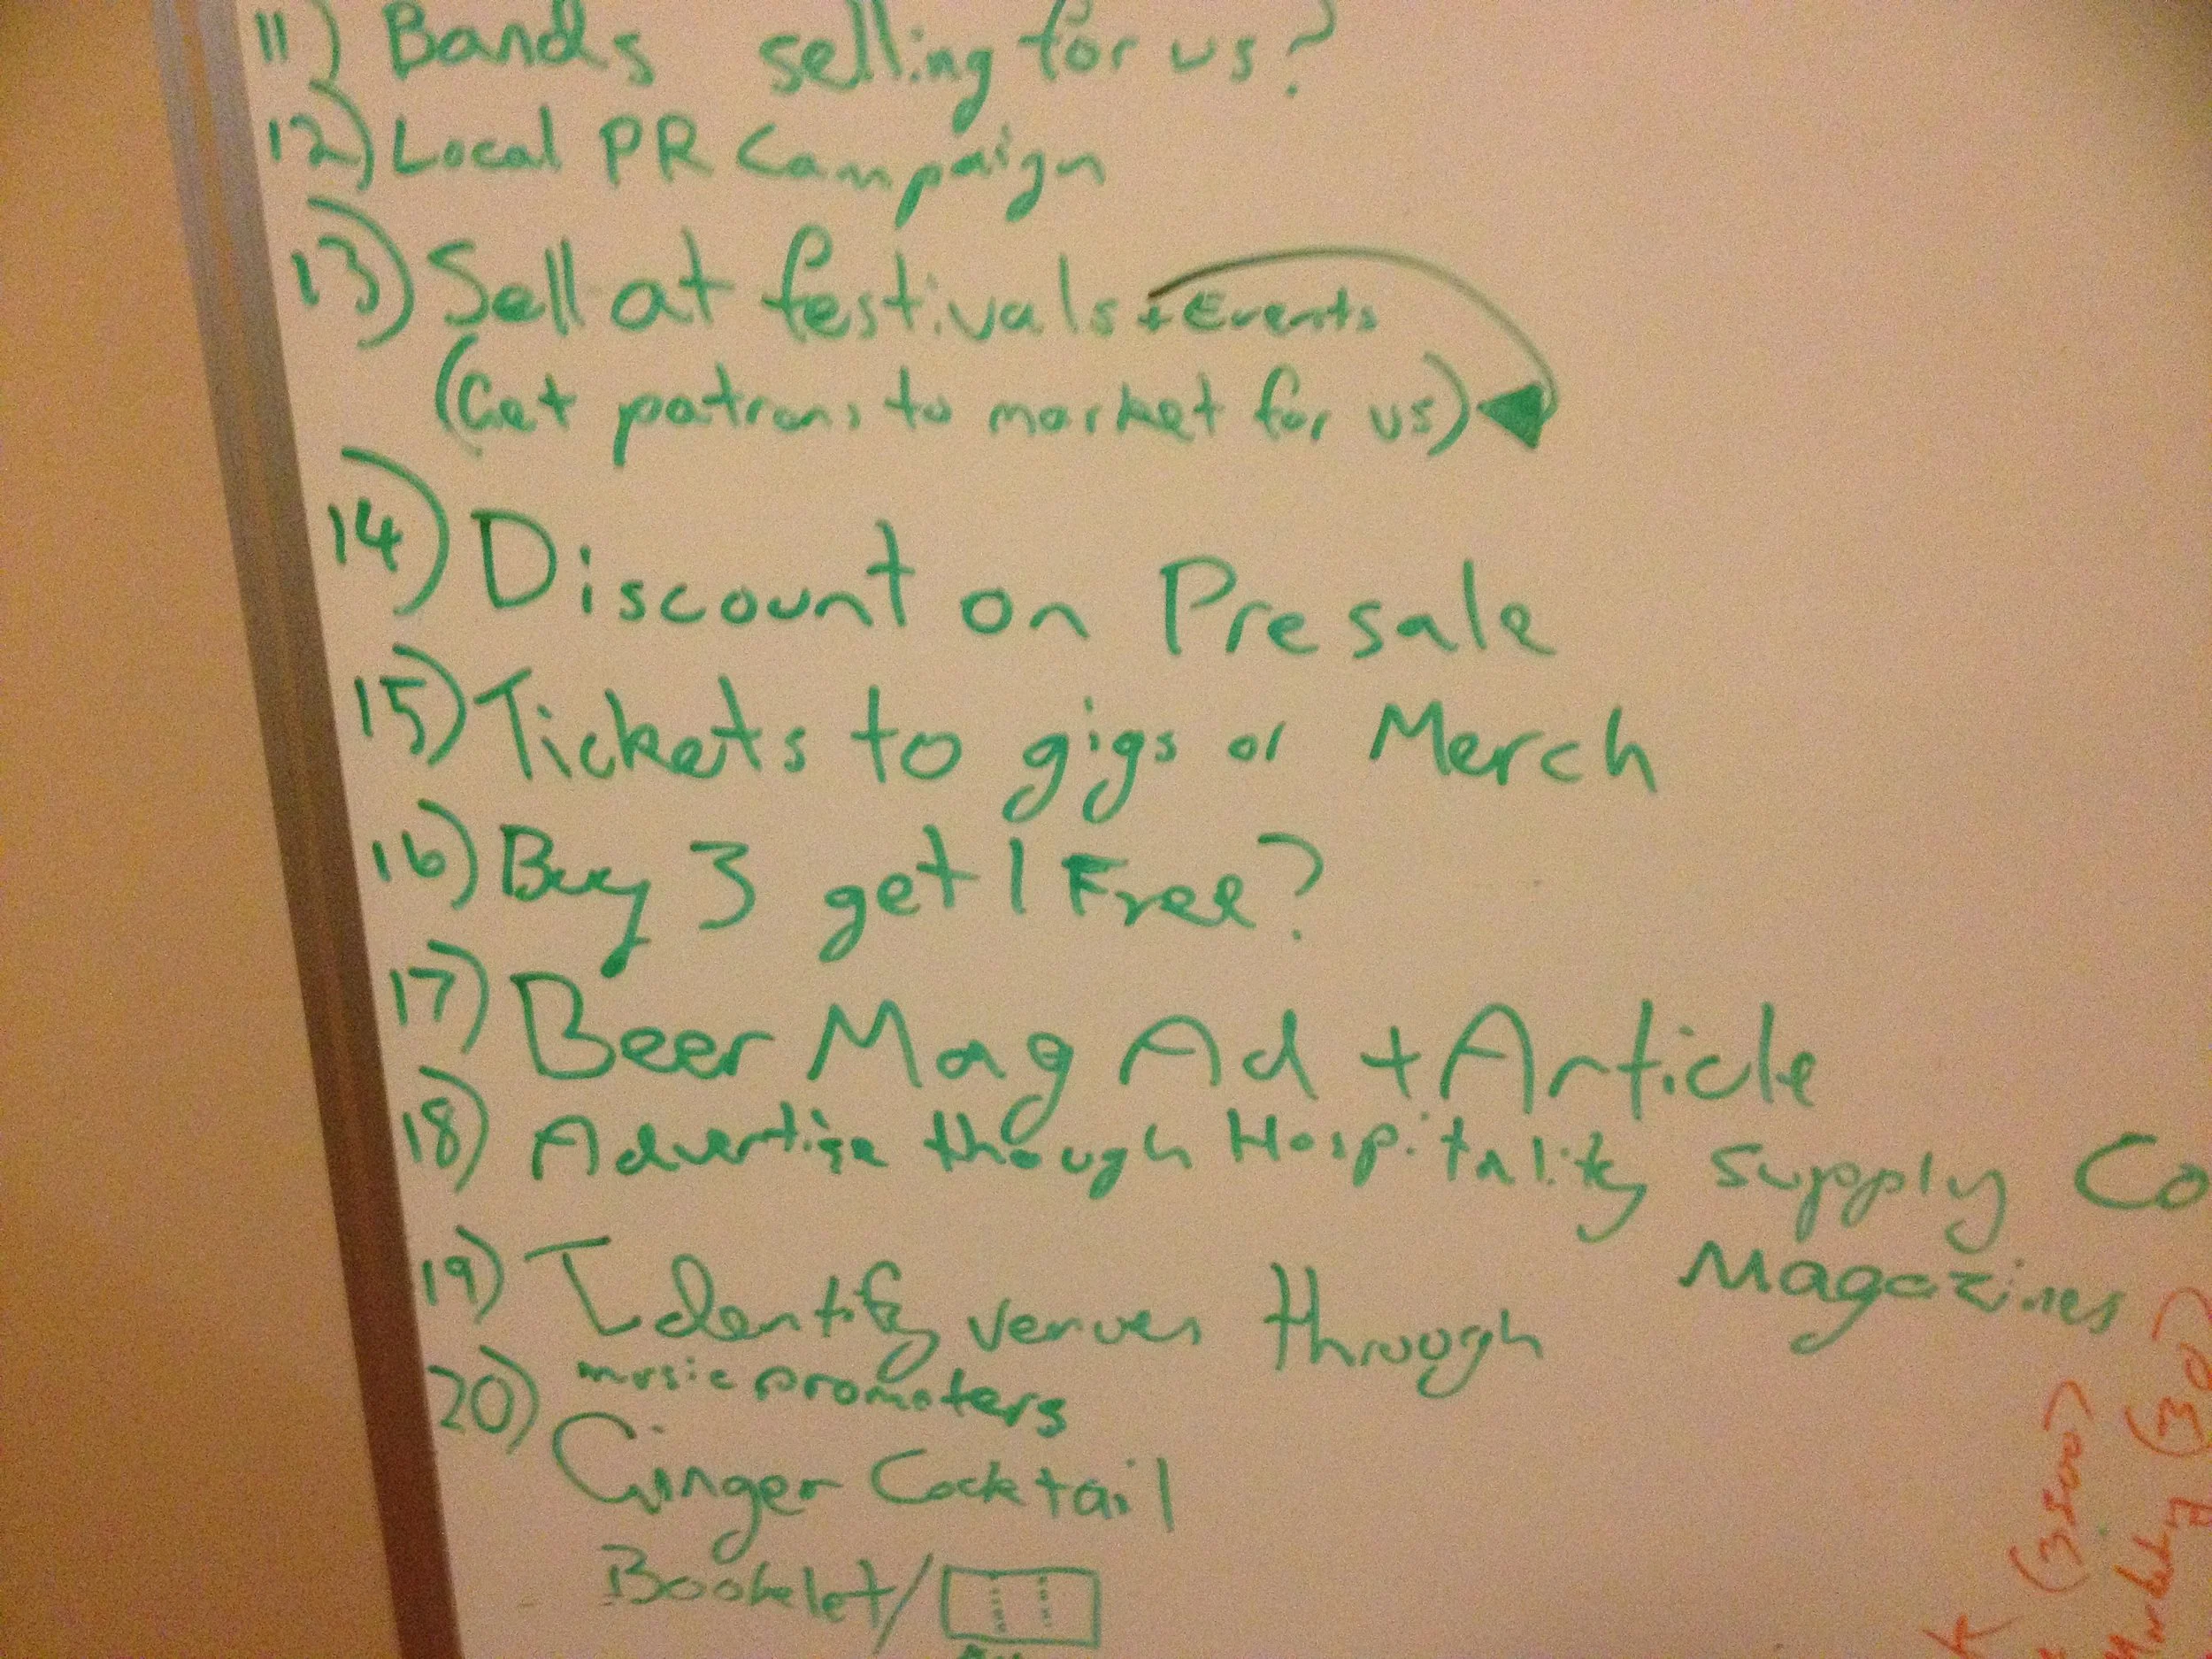 11) Bands selling for us?
12) Local PR Campaign
13) Sell at festivals + Events
(Get patrons to market for us)
14) Discount on Presale
15) Tickets to gigs or Merch
16) Buy 3 get 1 Free?
17) Beer Mag Ad + Article
18) Advertise though Hospitality Supply Co
Magazines
19) Identify venues through
music promoters
20) Ginger Cocktail
Booklet/
(3500)
(30)